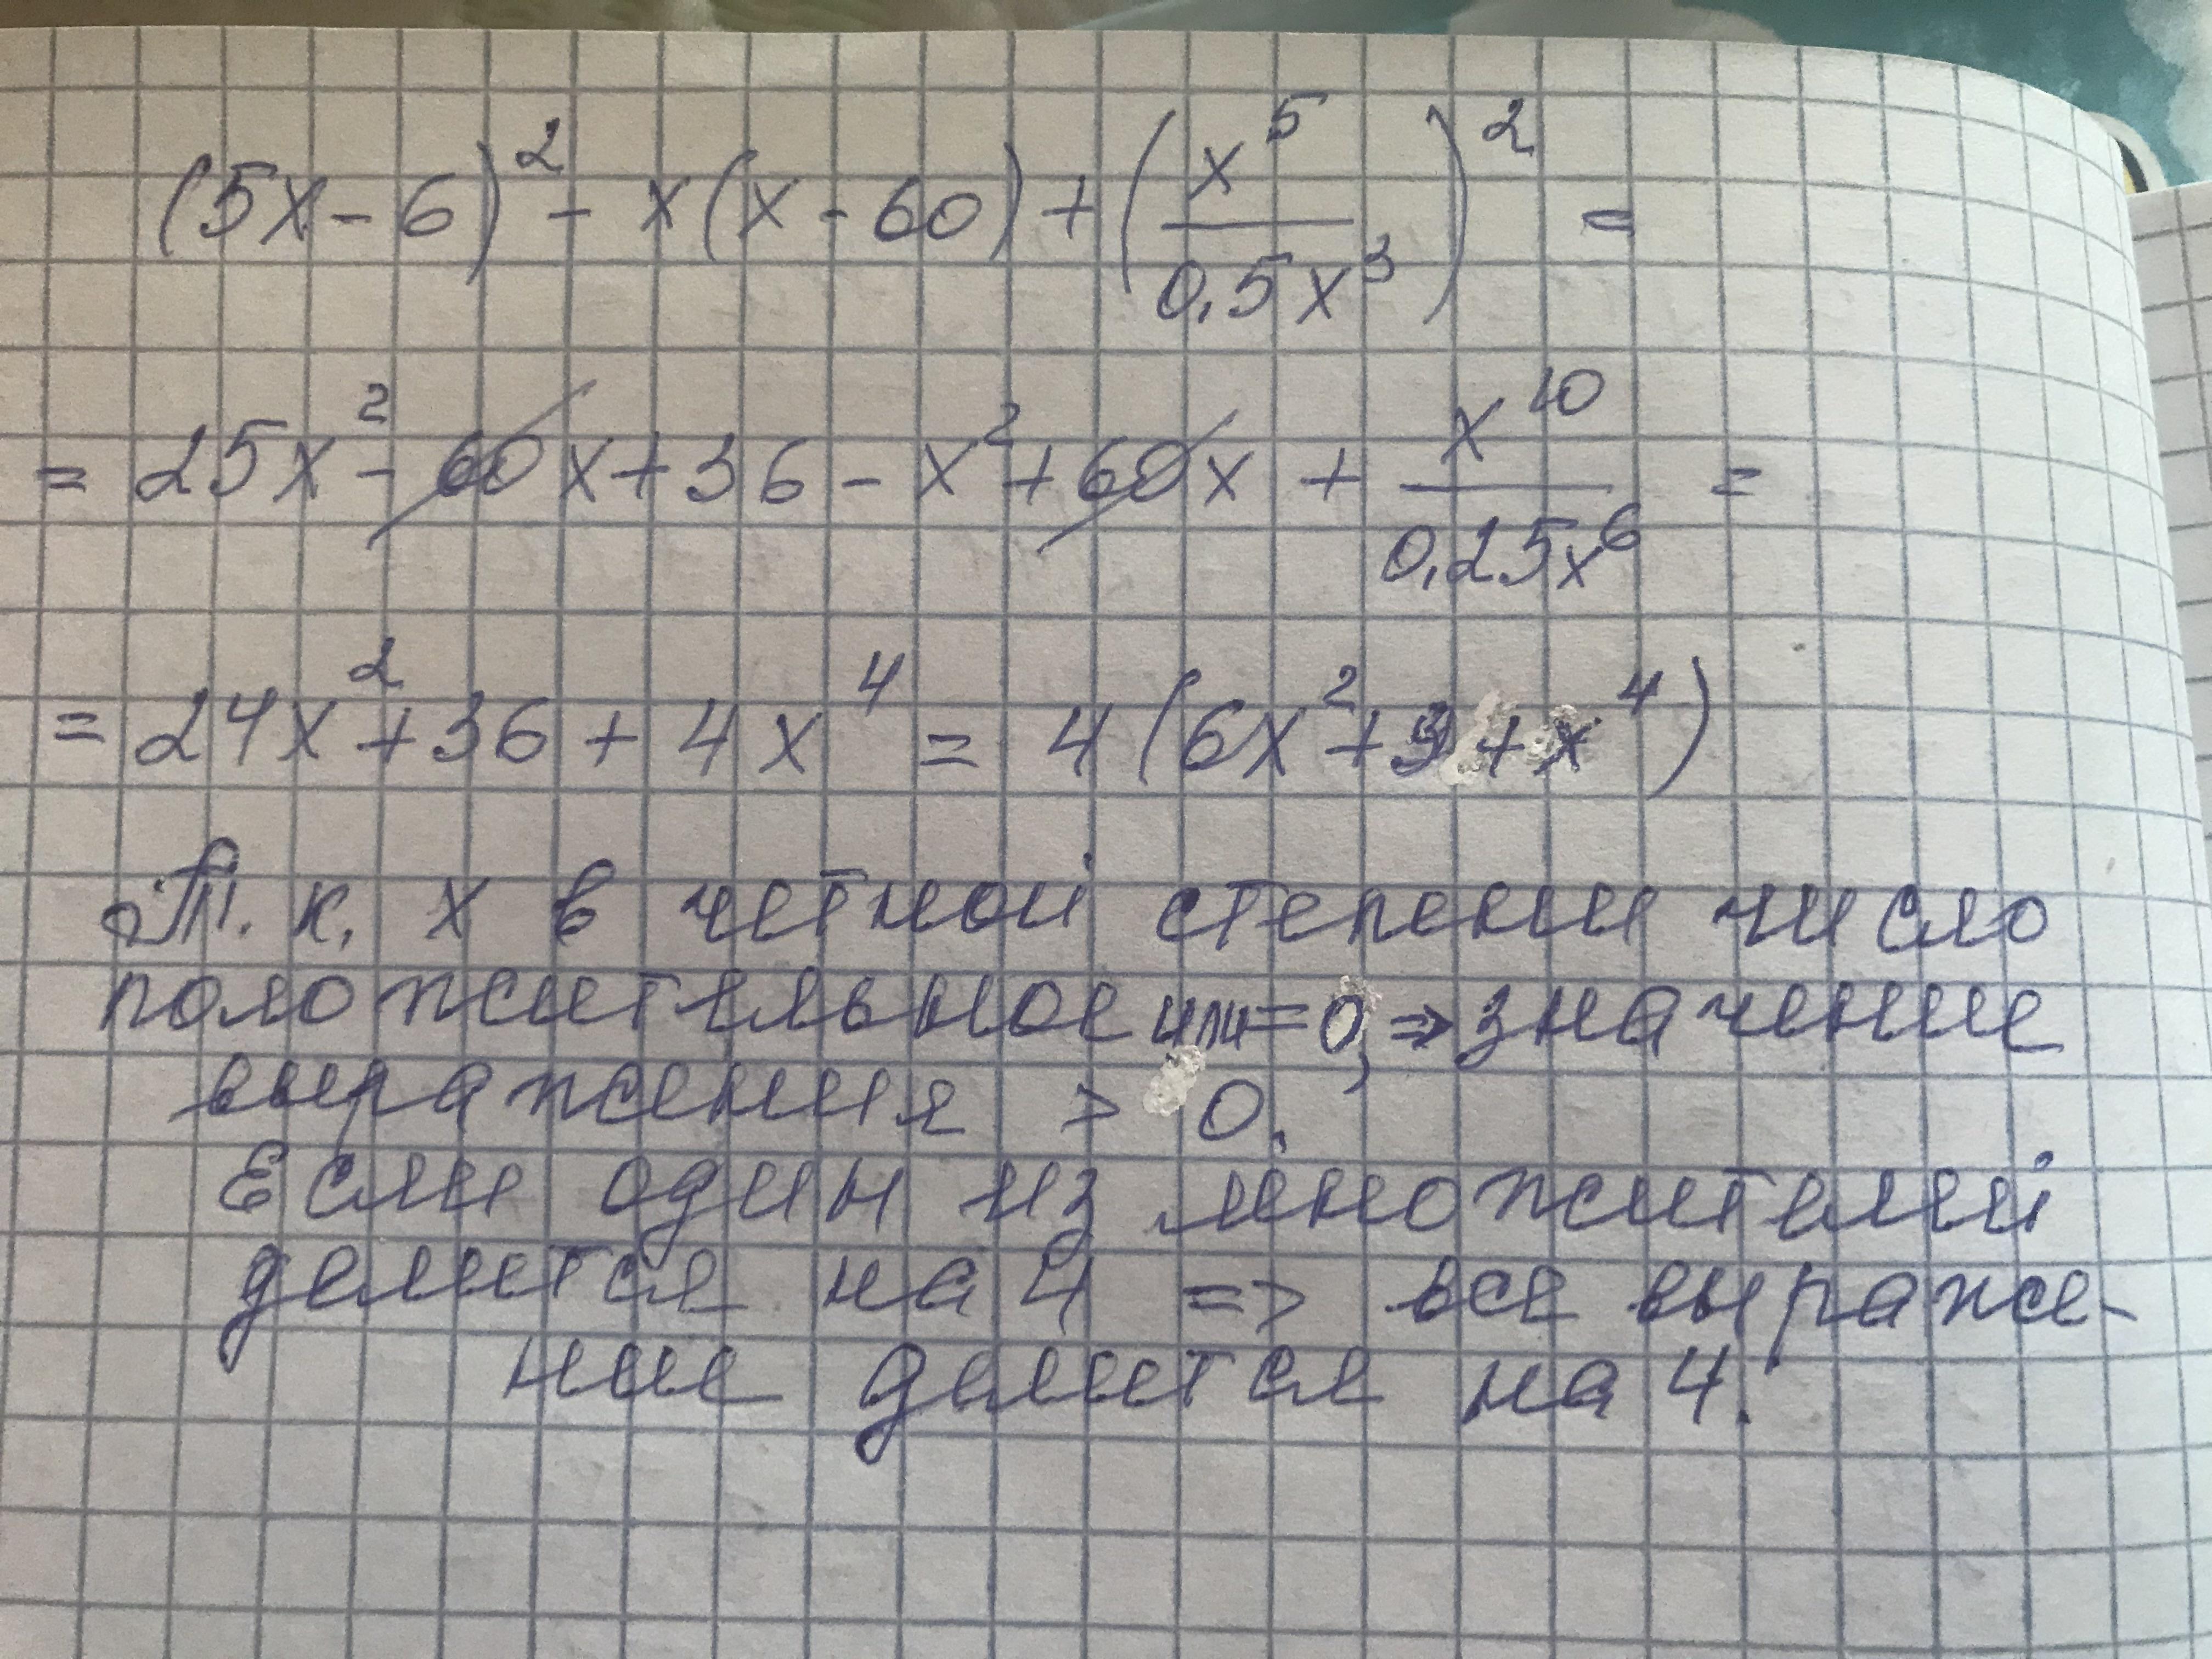 (5x-6)² - x(x-60) + (x⁵/0,5x³)² =
= 25x² - 60x + 36 - x² + 60x + x¹⁰/0,25x⁶ =
= 24x² + 36 + 4x⁴ = 4(6x² + 9 + x⁴)
Т.к. x в четной степени число
положительное или = 0, => значение
выражения > 0.
Если один из множителей
делится на 4 => все выраже-
ние делится на 4.